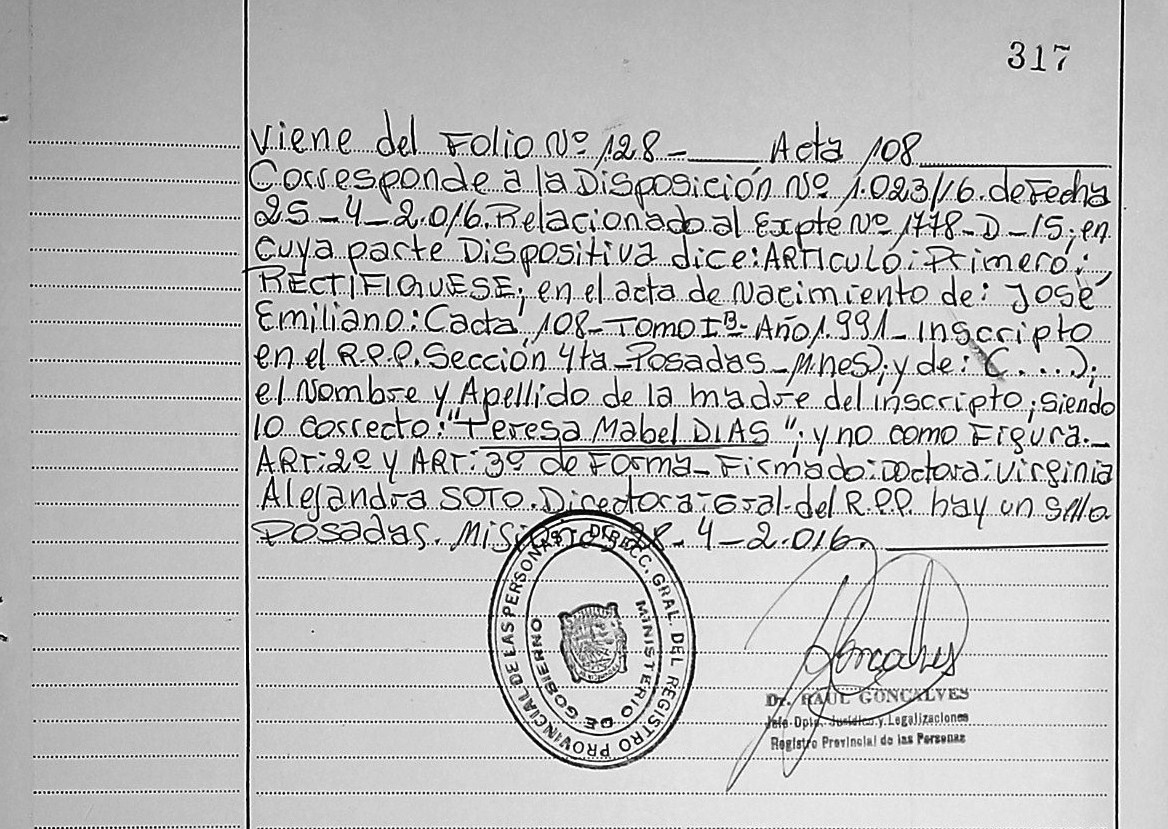 317
Viene del Folio Nº 128-____ Acta 108____
Corresponde a la Disposición Nº 1.023/16. de Fecha
25-4-2.016. Relacionado al Expte Nº 1778-D-15; en
cuya parte Dispositiva dice: ARTICULO: Primero;
RECTIFIQUESE; en el acta de Nacimiento de: José
Emiliano: Cacta 108- Tomo Iº- Año 1.991- Inscripto
en el R.P.P. Sección 4ta- Posadas- Mnes); y de: (....);
el Nombre y Apellido de la madre del inscripto; siendo
lo correcto: "Teresa Mabel DIAS"; y no como Figura.-
ART: 2º y ART: 3º de Forma- Firmado: Doctora: Virginia
Alejandra SOTO. Directora: Gral. del R.P.P. hay un sello
Posadas. Misiones 28-4-2.016.
DIRECC. GRAL. DEL REGISTRO PROVINCIAL DE LAS PERSONAS
MINISTERIO DE GOBIERNO
Dr. RAUL GONCALVES
Jefe Dpto. Jurídico y Legalizaciones
Registro Provincial de las Personas